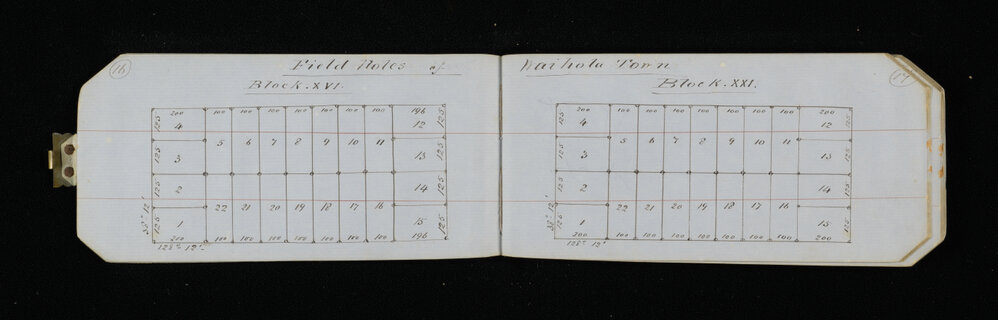 16
Field Notes of
Block. XVI.
200 100 100 100 100 100 100 100 196
125 4 12 125
5 6 7 8 9 10 11
125 3 13 125
125 2 14 125
22 21 20 19 18 17 16
38° 12'
125 1 15 125
200 100 100 100 100 100 100 100 196
128° 12'
Waihola Town
17
Block. XXI.
200 100 100 100 100 100 100 100 200
125 4 12 125
5 6 7 8 9 10 11
125 3 13 125
125 2 14 125
22 21 20 19 18 17 16
38° 12'
125 1 15 125
200 100 100 100 100 100 100 100 200
128° 12'